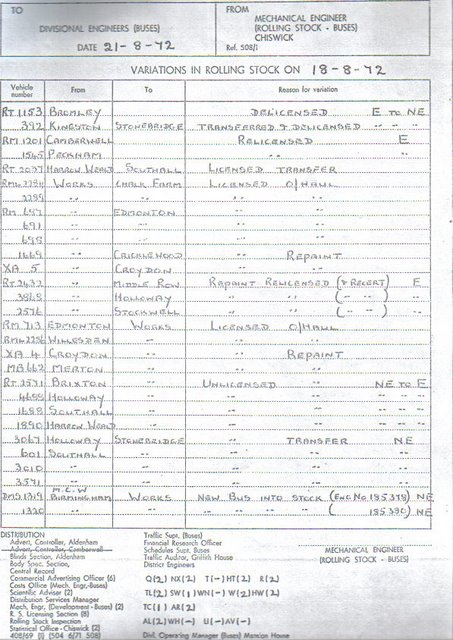 TO
DIVISIONAL ENGINEERS (BUSES)
DATE 21-8-72
FROM
MECHANICAL ENGINEER
(ROLLING STOCK - BUSES)
CHISWICK
Ref. 508/1
VARIATIONS IN ROLLING STOCK ON 18-8-72
Vehicle number From To Reason for variation
RT 1153 BROMLEY DELICENSED E TO NE
392 KINGSTON STONEBRIDGE TRANSFERRED & DELICENSED " " "
RM 1201 CAMBERWELL RELICENSED E
1545 PECKHAM " "
RT 2037 HARROW WEALD SOUTHALL LICENSED TRANSFER
RML 2751 WORKS CHALK FARM LICENSED O/HAUL
2299 " " " "
RM 687 " EDMONTON " "
691 " " " "
698 " " " "
1669 " CRICKLEWOOD " REPAINT
XA 5 " CROYDON " "
RT 2432 " MIDDLE ROW REPAINT RELICENSED (& RECERT) E
3868 " HOLLOWAY " " ( " " ) "
2576 " STOCKWELL " " ( " " ) "
RM 713 EDMONTON WORKS LICENSED O/HAUL
RML 2256 WILLESDEN " " "
XA 4 CROYDON " " REPAINT
MB 662 MERTON " " "
RT 2571 BRIXTON " UNLICENSED NE TO E
4655 HOLLOWAY " " " " "
1688 SOUTHALL " " " " "
1890 HARROW WEALD " " " " "
3067 HOLLOWAY STONEBRIDGE " TRANSFER NE
601 SOUTHALL " " " "
3010 " " " " "
3571 " " " " "
DMS 1319 M.C.W BIRMINGHAM WORKS NEW BUS INTO STOCK (ENG NO 185378) NE
1320 " " " " " " ( 185390) NE
DISTRIBUTION
Advert, Controller, Aldenham
Advert, Controller, Camberwell
Blinds Section, Aldenham
Body Spec. Section,
Central Record
Commercial Advertising Officer (6)
Costs Office (Mech. Engr.-Buses)
Scientific Adviser (2)
Distribution Services Manager
Mach. Engr, (Development - Buses) (2)
R. S. Licensing Section (8)
Rolling Stock Inspection
Statistical Office - Chiswick (2)
408/69 (I) (504 6/71 508)
Traffic Supt. (Buses)
Financial Research Officer
Schedules Supt. Buses
Traffic Auditor, Griffith House
District Engineers
Q(2) NX(2) T(-) HT(2) R(2)
TL(2) SW(1) WN(-) W(2) HW(2)
TC(1) AR(2)
AL(2) WH(-) U(-) AV(-)
Divl. Operating Manager (Buses) Mansion House
MECHANICAL ENGINEER
(ROLLING STOCK - BUSES)